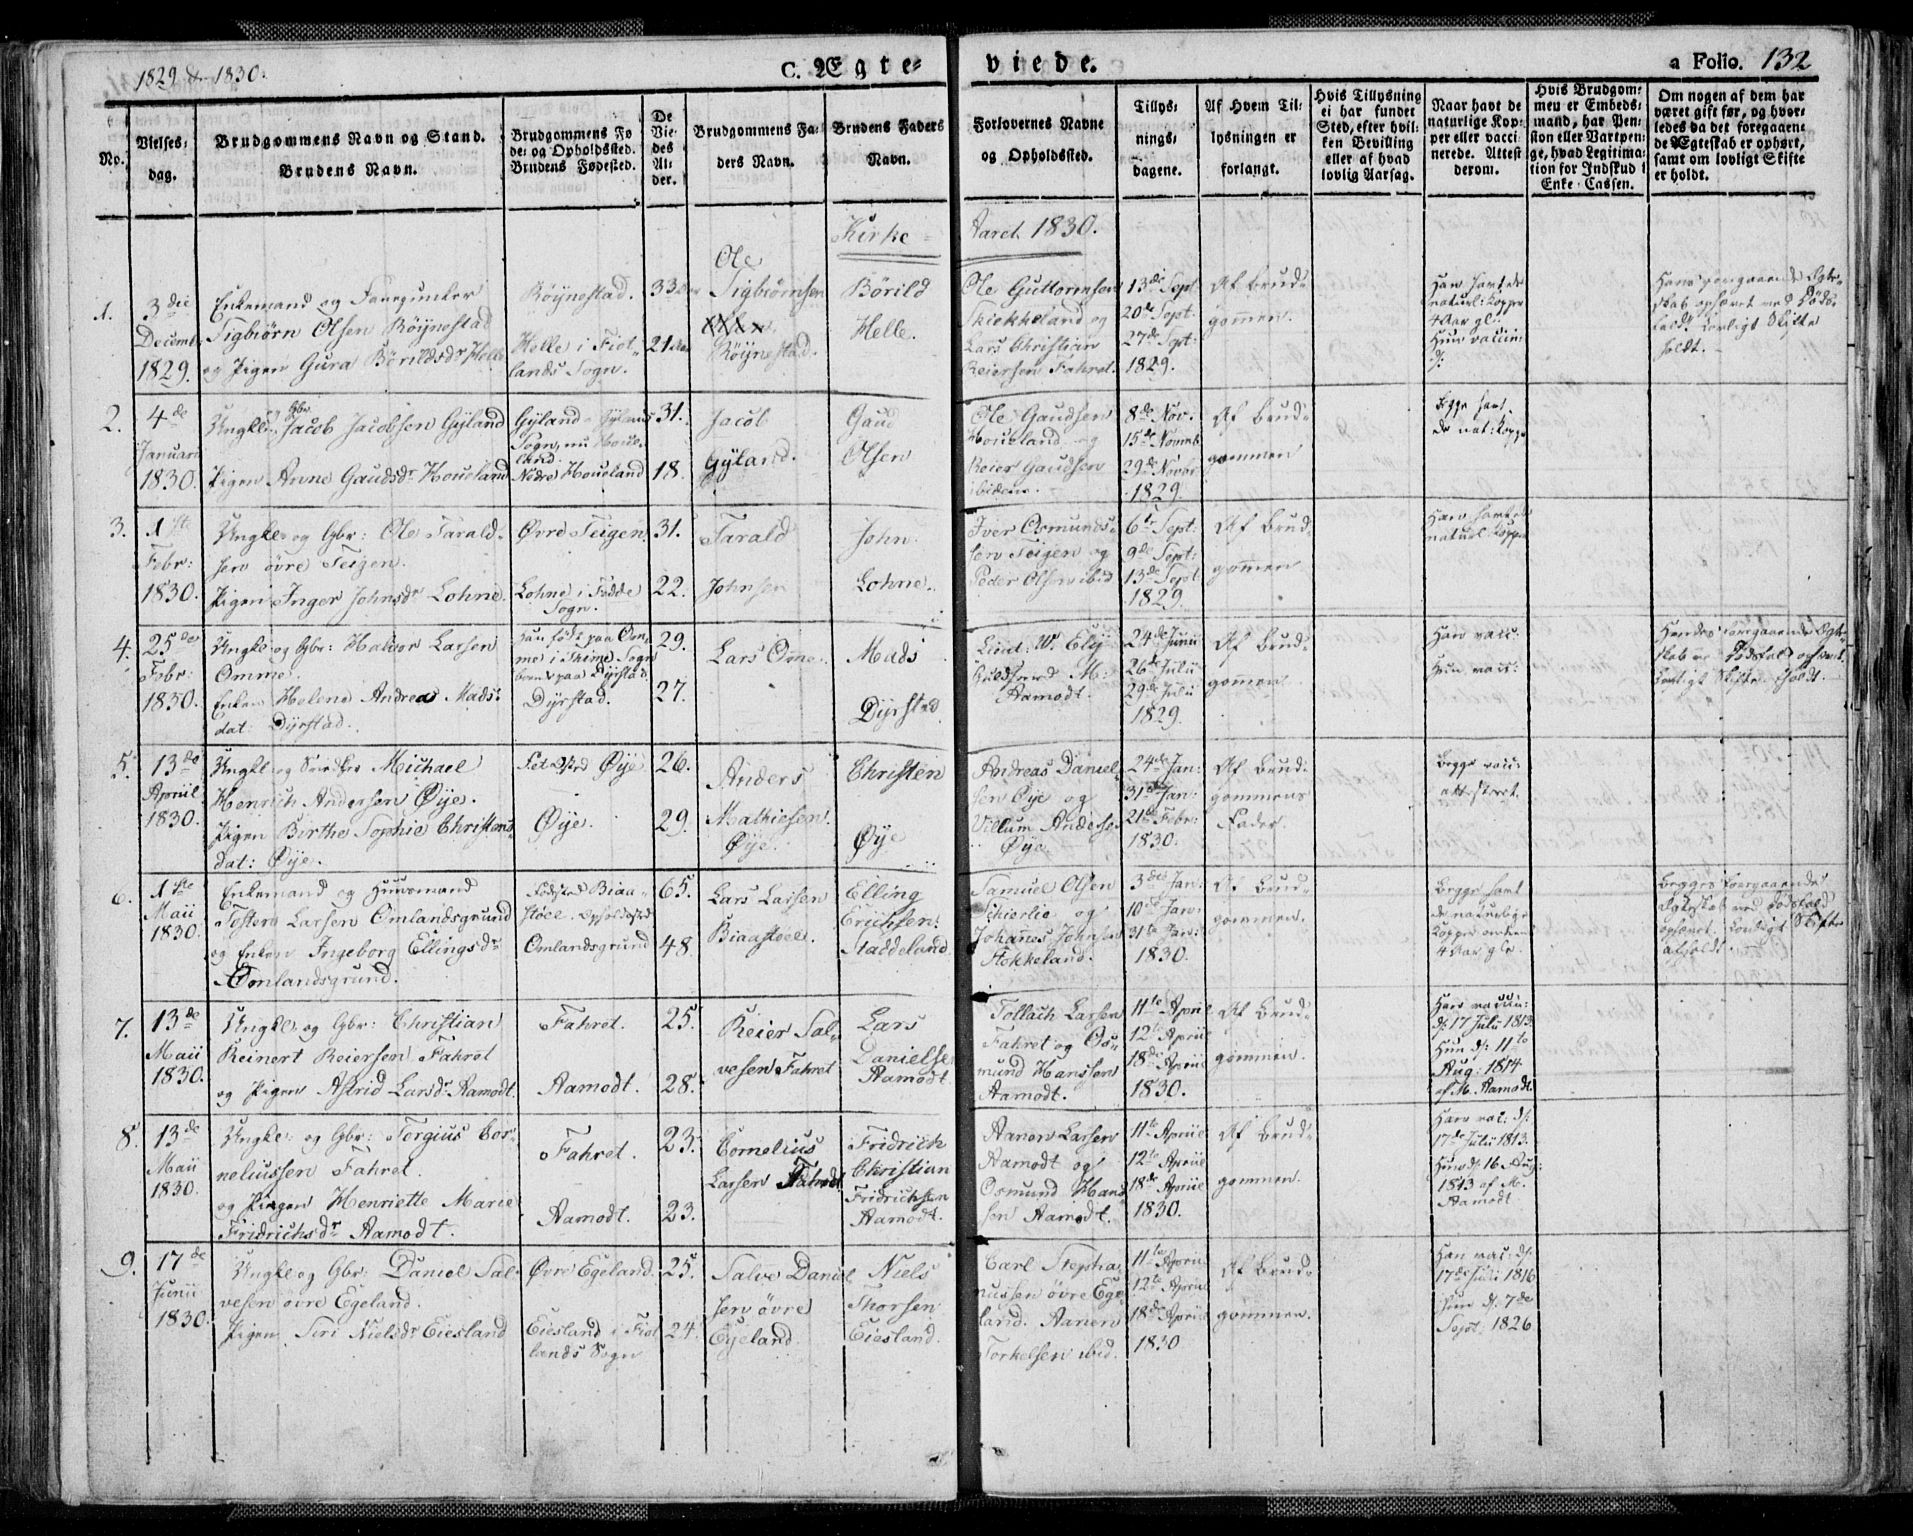 1829 & 1830.
C. Ægte-
viede.
a Folio. 132
No.
Vielses-
dag.
Brudgommens Navn og Stand.
Brudens Navn.
Brudgommens Fø
de- og Opholdssted.
Brudens Fødested.
De
Vie-
des
Al-
der.
Brudgommens Fa-
ders Navn.
Brudens Faders
Navn.
Forlovernes Navne
og Opholdssted.
Tillys-
nings-
dagene.
Af Hvem Til-
lysningen er
forlangt.
Hvis Tillysning
ei har fundet
Sted, efter hvil-
ken Bevilling
eller af hvad
lovlig Aarsag.
Naar havt de
naturlige Kop-
per eller vacci
nerede. Attest
derom.
Hvis Brudgom-
men er Embeds-
mand, har Pen-
sion eller Vartpen-
ge, hvad Legitima-
tion for Indskud i
Enke-Cassen.
Om nogen af dem har
været gift før, og hvor-
ledes da det foregaaen-
de Ægteskab er ophørt,
samt om lovligt Skifte
er holdt.
Kirke-
Aaret 1830.
1.
3die
Decembr
1829.
Enkemand og
Sigbiørn Olsen Röijnestad
og Pigen Gura Börildsdr Helle
Röijnestad.
Helle i Fiot-
lands Sogn.
33
21
Ole
Sigbiörnsen
Röijnestad.
Börild
Helle.
Ole Guttormsen
Skiekkeland og
Lars Christian
Reiersen Fahret.
13de Sept
20de Sept.
27de Sept:
1829.
Af Brud-
gommen.
Han havt de
naturl: Kopper
4 Aar gl.
Hun vaccin:
Hans foregaaende Ægte-
skab ophævet ved Døds-
fald. Lovligt Skifte
holdt.
2.
4de
Januarii
1830.
Ungk. og Gbr Jacob Jacobsen Gyland
Pigen Anne Gaudsdr Houeland
Gyland i Gylands
Sogn, nu Houe-
land
Nedre Houeland
31.
18.
Jacob
Gyland.
Gaud
Olsen
Ole Gaudsen
Houeland og
Reier Gaudsen
ibidem.
8de Nov:
15de Novemb
29de Novbr
1829.
Af Brud-
gommen
Begge havt
de nat: Kopper
3.
1ste
Febr:
1830.
Ungk: og Gbr: Ole Tarald-
sen övre Teigen.
Pigen Inger Johnsdr Lohne.
Øvre Teigen.
Lohne i Fedde
Sogn.
31.
22.
Tarald
Johnsen
John
Lohne.
Iver Osmunds-
sen Teigen og
Peder Olsen ibid
6te Sept.
9de Sept:
13de Sept
1829.
Af Brud-
gommen
Han havt de
naturl. Kopper
4.
25de
Febr:
1830.
Ungk: og Gbr: Halvor Larsen
Omme.
Enken Helene Andrea Mads-
dat: Dyrstad.
Han født paa Om-
me i Sogn
paa Dyrstad.
Dyrstad.
29.
27.
Lars Omme.
Mads
Dyrstad
Lieut: W. Ely
M:
Aamodt.
24de Junii
26de Julii
29de Julii
1829.
Af Brud-
gommen.
Han vacc:
Hun vacc:
Hendes foregaaende Ægte-
skab ved Dødsfald ophævet.
Lovligt Skifte holdt.
5.
13de
Apriil
1830.
Ungk: og Michael
Henrich Andersen Øije.
Pigen Birthe Sophie Christens-
dat: Øije.
Øije
Øije.
26.
29.
Anders
Mathiesen
Øije.
Christen
Øije
Andreas Daniel-
sen Øije og
Villum Anderse
Øije.
24de Jan:
31te Jan:
21de Febr:
1830.
Af Brud-
gommens
Fader.
Begge vacc:
attesteret.
6.
1ste
Maii
1830.
Enkemand og Huusmand
Tosten Larsen Omlandsgrund
og Enken Ingeborg Ellingsdr
Omlandsgrund.
Fødested Biaa-
støel. Opholdsted
Omlandsgrund
65.
48.
Lars Larsen
Biaastoel.
Elling
Erichsen
Staddeland
Samuel Olsen
Schierlie og
Johannes Johnsen
Stokkeland.
3die Jan:
10de Jan:
31te Jan:
1830.
Af Brud-
gommen.
Begge havt
de naturlige
Kopper omtrent
4 Aar gle.
Begges foregaaende
Ægteskab ved Dødsfald
ophævet. Lovligt Skifte
afholdt.
7.
13de
Maii
1830.
Ungk: og Gbr: Christian
Reinert Reiersen Fahret
og Pigen Astrid Larsdr Aamodt.
Fahret.
Aamodt.
25.
28.
Reier Sal-
vesen Fahret
Lars
Danielse
Aamodt.
Tollach Larsen
Fahret og Os-
mund Hanssen
Aamodt.
11te Apriil
12te Apriil
18de Apriil
1830.
Af Brud-
gommen.
Han vaccin:
d: 17 Julii 1813.
Hun d: 11te
Aug: 1814
af M. Aamodt.
8.
13de
Maii
1830.
Ungk: og Gbr: Tergius Cor-
neliussen Fahret.
og Pigen Henriette Marie
Fridrichsdr Aamodt.
Fahret.
Aamodt.
23.
23.
Cornelius
Larsen Fahret
Fridrich
Christian
Fridrichsen
Aamodt.
Aanen Larsen
Aamodt og
Osmund Hans
sen Aamodt.
11te Apriil
12te Apriil
18de Apriil
1830.
Af Brud-
gommen.
Han vac: d:
17de Julii 1813.
Hun d: 16 Aug:
1813 af M.
Aamodt
9.
17de
Junii
1830.
Ungk: og Gbr: Daniel Sal-
vesen övre Egeland.
Pigen Siri Nielsdr Eiesland
Øvre Egeland.
Eiesland i Fiot
lands Sogn
25.
24.
Salve Daniel
sen övre
Egeland.
Niels
Thorsen
Eiesland.
Carl Stepha-
nussen övre Ege
land. Aanen
Torkelsen ibid.
11te Apriil
12te Apriil
18de Apriil
1830
Af Brud-
gommen.
Han vac: d:
17de Julii 1816
Hun d. 7de
Sept. 1826